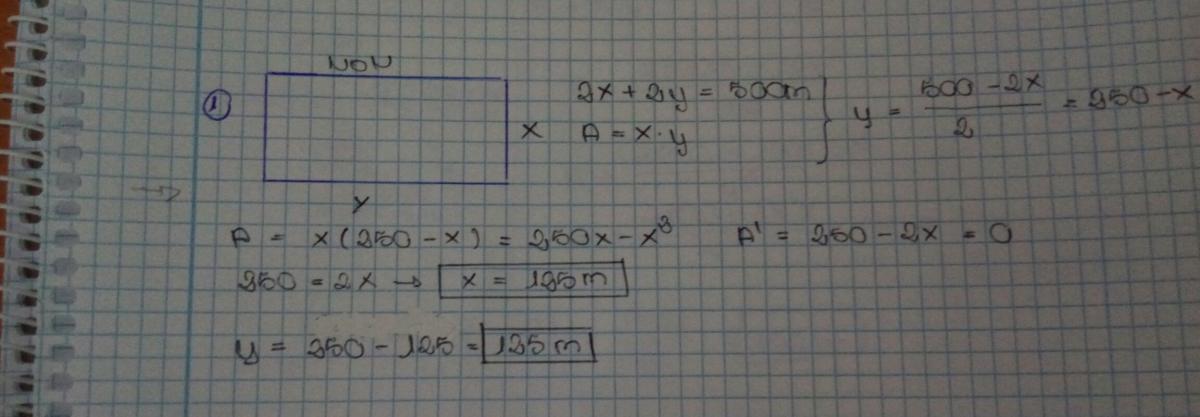 NON
① 2x + 2y = 500m } y = (500 - 2x)/2 = 250 - x
x A = x · y
y
A = x(250 - x) = 250x - x² A' = 250 - 2x = 0
250 = 2x → x = 125m
y = 250 - 125 = 125m